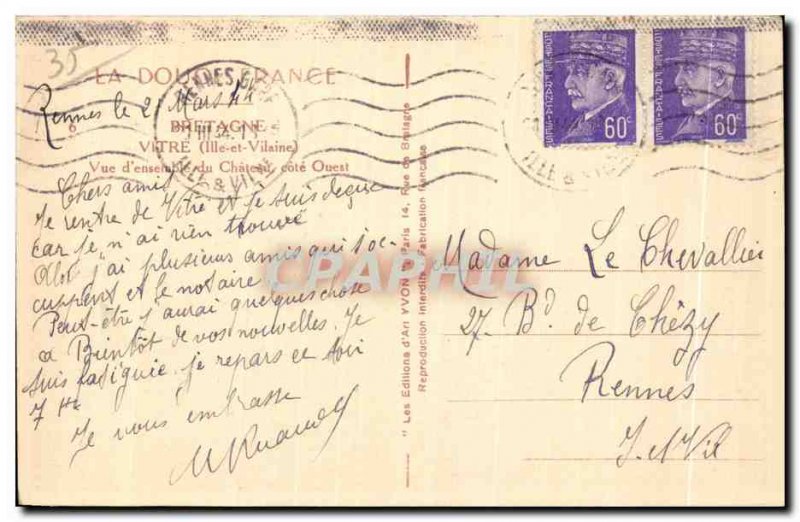 35
LA DOUCE FRANCE
Rennes le 21 Mars 44
6
BRETAGNE
VITRÉ (Ille-et-Vilaine)
Vue d'ensemble du Château, côté Ouest
Chers amis
Je rentre de Vitré et je suis deçue
car je n'ai rien trouvé
j'ai plusieurs amis qui s'oc-
cuppent et le notaire
Peut-être j'aurai quelques chose
a Bientôt de vos nouvelles. Je
suis fatiguée je repars ce soir
7 hr
Je vous embrasse
" Les Editions d'Art YVON " Paris 14, Rue de Bretagne
Reproduction Interdite Fabrication française
CPAPHIL
60c
60c
ILLE & VILAINE
Madame Le Chevallier
27 Bd de Chézy
Rennes
I. et Vil